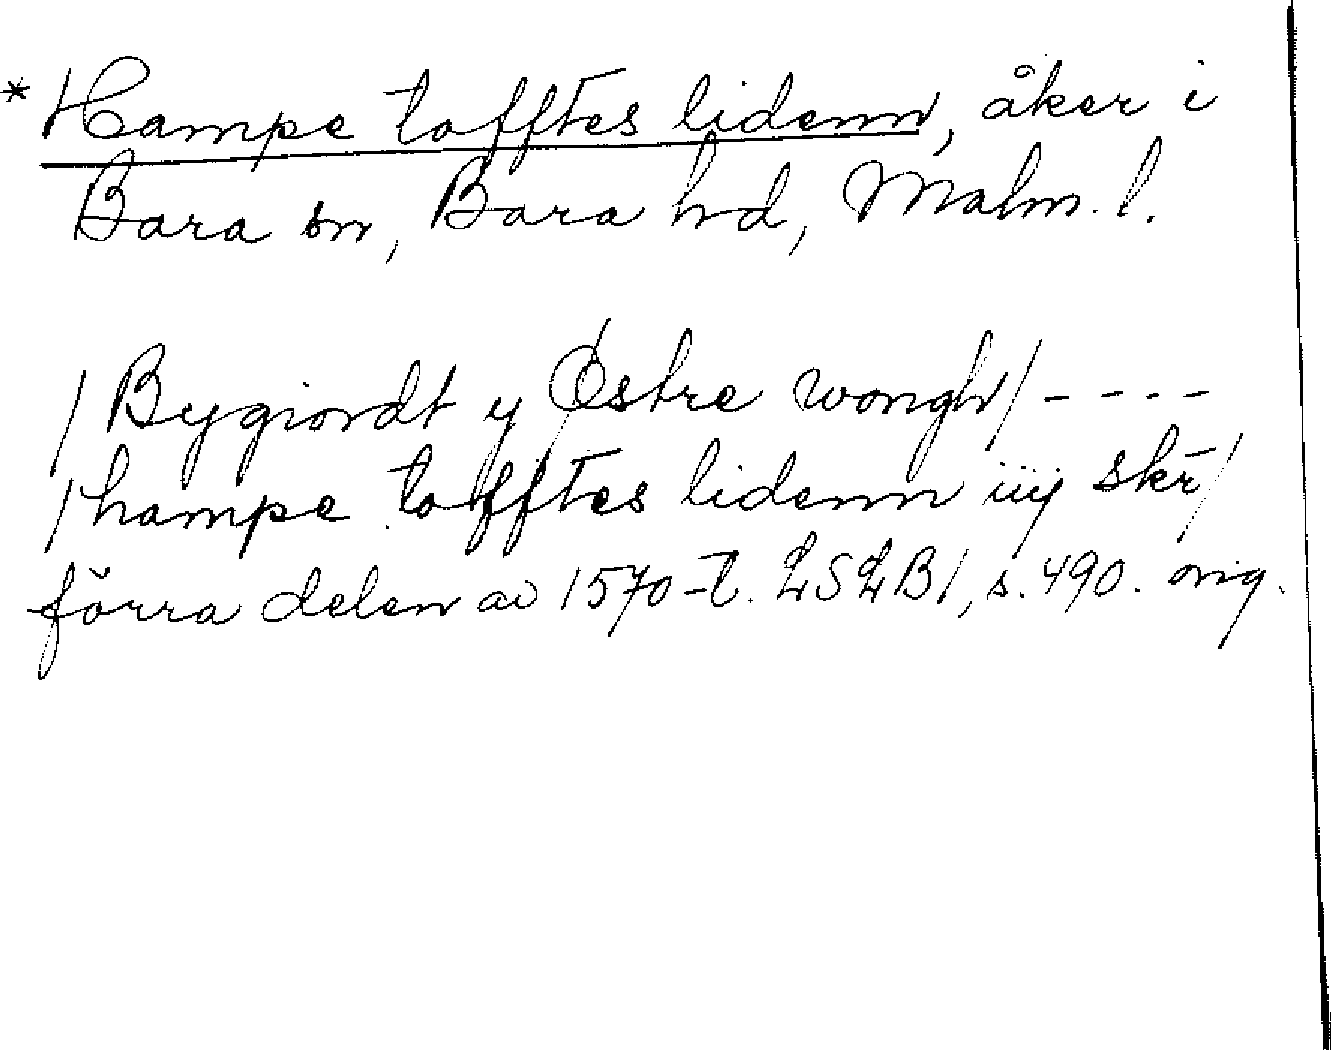 * Hampe tofftes lidenn, åker i
Bara sn, Bara hd, Malm. l.
/Bygiordt y Østre wongh/ ----
/hampe tofftes lidenn iiij skr̄/
förra delen av 1570-t. LSLB1, s. 490. orig.